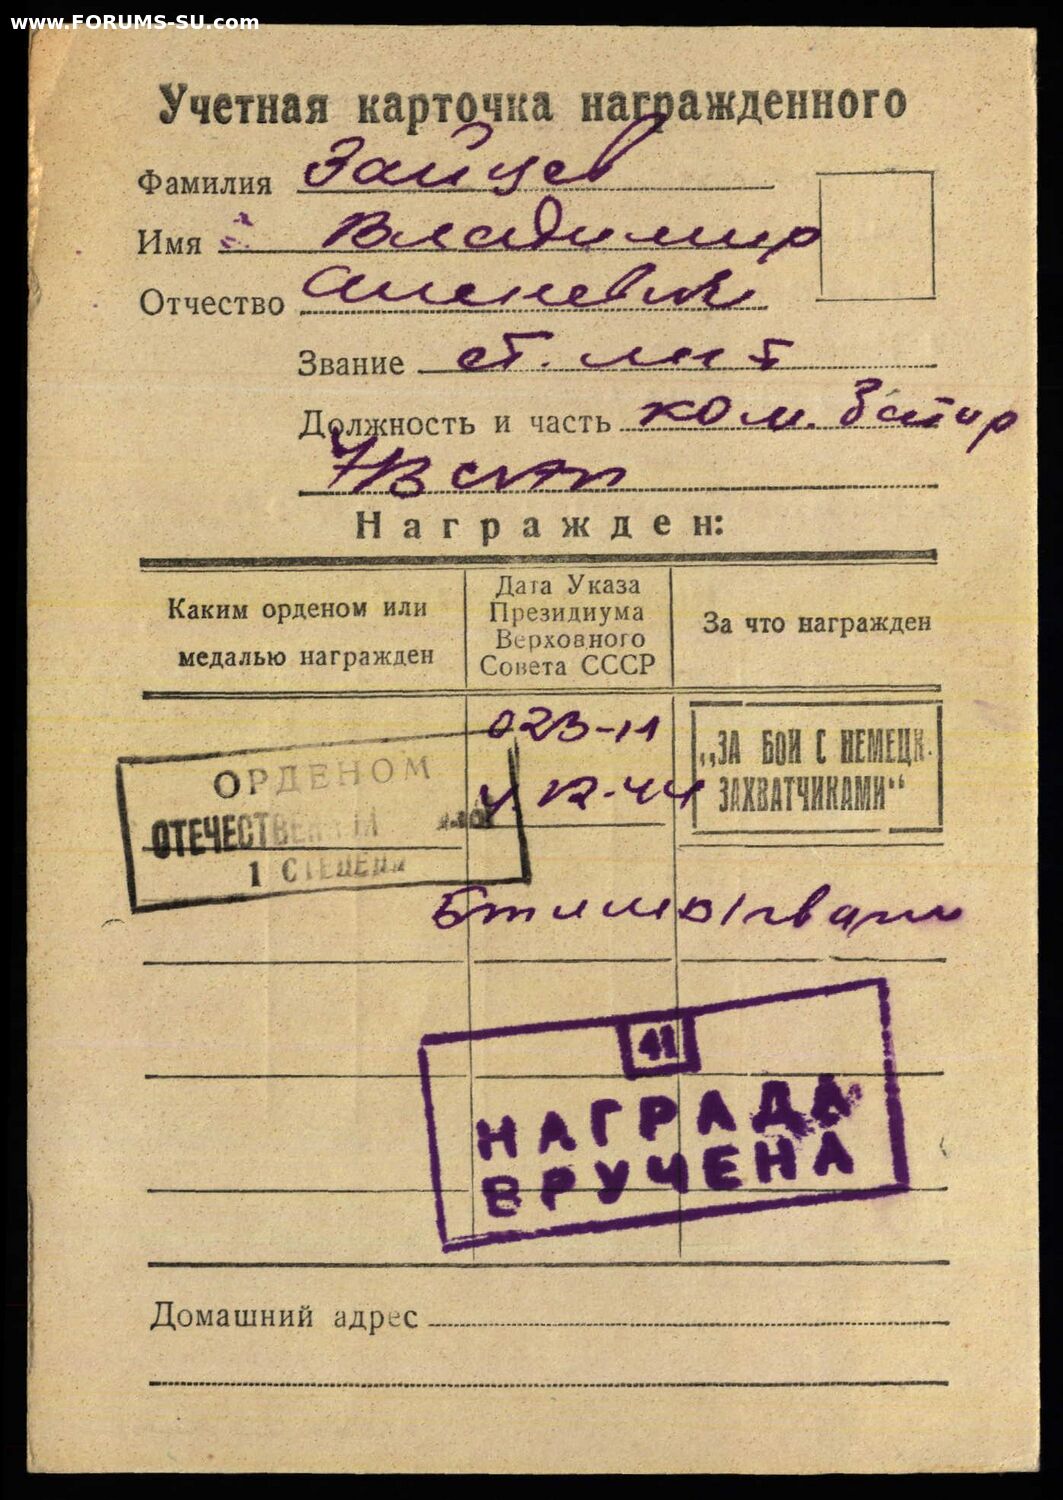 www.FORUMS-SU.com
Учетная карточка награжденного
Фамилия Зайцев
Имя Владимир
Отчество
Звание ст. л-нт
Должность и часть ком. батар
Награжден:
Каким орденом или медалью награжден
Дата Указа Президиума Верховного Совета СССР
За что награжден
023-н
ОРДЕНОМ
ОТЕЧЕСТВЕННОЙ
1 СТЕПЕНИ
12-44
„ЗА БОИ С НЕМЕЦК.
ЗАХВАТЧИКАМИ“
41
НАГРАДА
ВРУЧЕНА
Домашний адрес